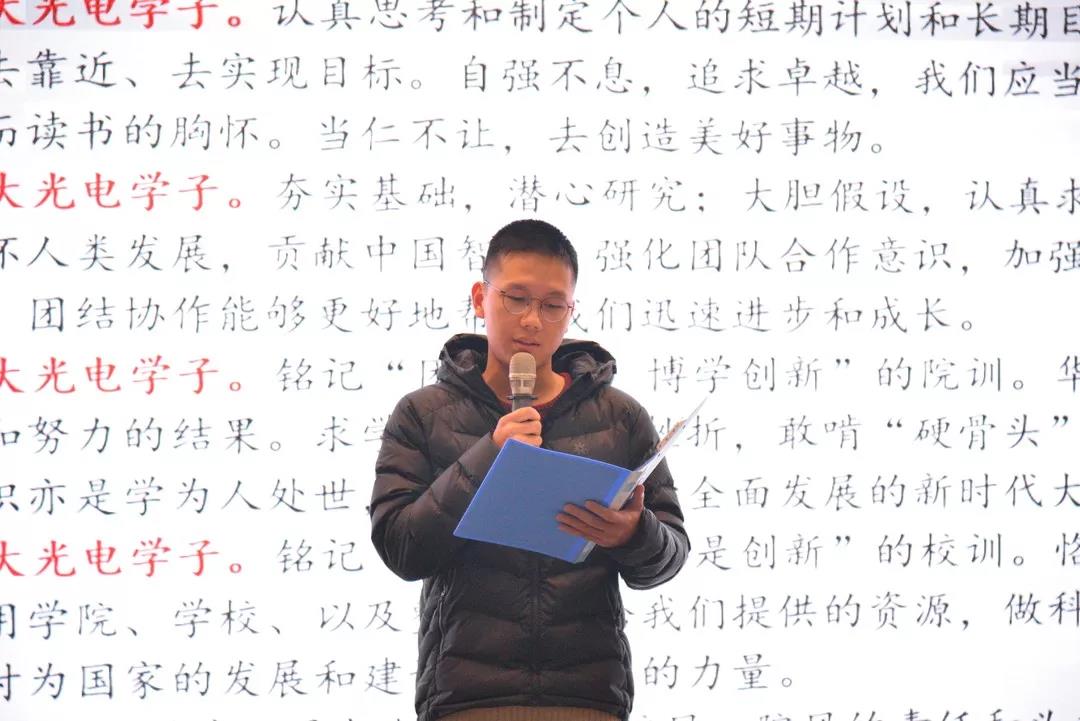 大光电学子。认真思考和制定个人的短期计划和长期目
去靠近、去实现目标。自强不息，追求卓越，我们应当
历读书的胸怀。当仁不让，去创造美好事物。
大光电学子。夯实基础，潜心研究；大胆假设，认真求
怀人类发展，贡献中国智 强化团队合作意识，加强
团结协作能够更好地帮 我们迅速进步和成长。
大光电学子。铭记“团 博学创新”的院训。华
和努力的结果。求学 挫折，敢啃“硬骨头”
识亦是学为人处世 全面发展的新时代大
大光电学子。铭记 是创新”的校训。恪
用学院、学校、以及 给我们提供的资源，做科
时为国家的发展和建 的力量。